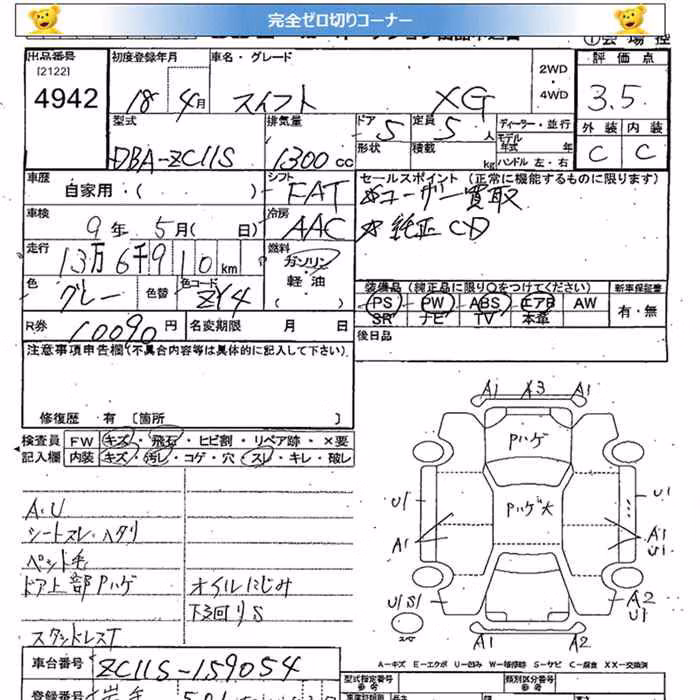 完全ゼロ切りコーナー
出品番号 初度登録年月 車名・グレード 評価点
[2122]
4942 18年 4月 スイフト XG 2WD・4WD 3.5
型式 排気量 ドア 5 定員 5人 ディーラー・並行 外装 内装
DBA-ZC11S 1300cc 形状 積載 kg モデル年式 年 ハンドル 左・右 C C
車歴 シフト セールスポイント (正常に機能するものに限ります)
自家用・( ) FAT ☆ユーザー買取
車検 冷房
9年 5月( 日) AAC ☆純正CD
走行 燃料
13万6千910km ガソリン・軽油
色 色替 色コード 装備品 (純正品に限り○をつけてください) 新車保証書
グレー ZY4 ( ) PS PW ABS エアB AW 有・無
SR ナビ TV 本革
R券 10090円 名変期限 月 日 後日品
注意事項申告欄(不具合内容等は具体的に記入して下さい)
修復歴 有 [箇所 ]
検査員 FW キズ・飛石・ヒビ割・リペア跡・×要
記入欄 内装 キズ・汚レ・コゲ・穴・スレ・キレ・破レ
A1 A3 A1
Pハゲ
Pハゲ大
U1 U1
A1 A1
U1
U1S1 A2
U1
A1 A2
A.U
シートスレ・ヘタリ
ペット毛
ドア上部Pハゲ オイルにじみ
下回りS
スタッドレスT
A-キズ E-エクボ U-凹み W-補修跡 S-サビ C-腐食 XX-交換済
車台番号 ZC11S-159054
型式指定番号 類別区分番号
登録番号 岩手 501